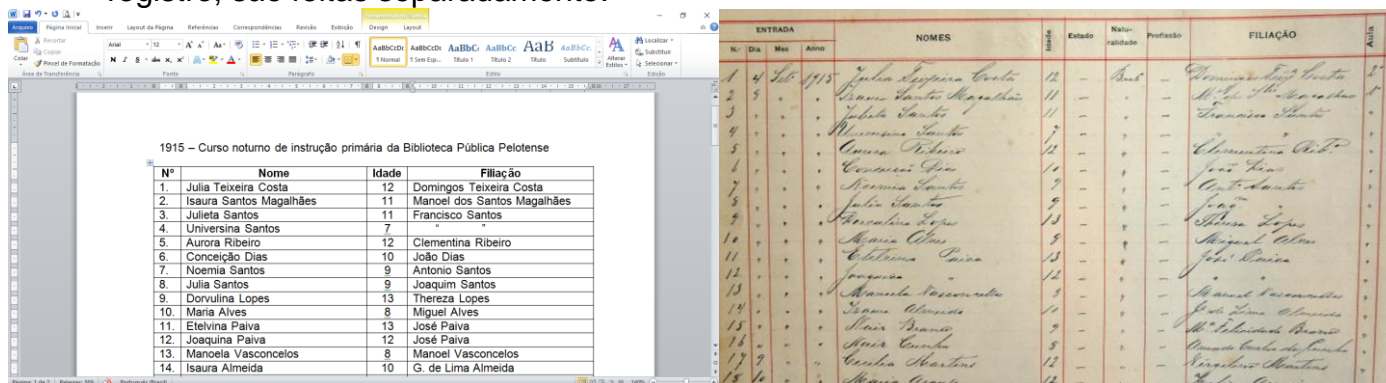 registro, são feitas separadamente.
Arquivo Página Inicial Inserir Layout da Página Referências Correspondências Revisão Exibição Design Layout
Colar Recortar Copiar Pincel de Formatação
Área de Transferência
Arial 12
Fonte
Parágrafo
AaBbCcDc AaBbCcDc AaBbC AaBbCc AaB AaBbCc
1 Normal 1 Sem Esp... Título 1 Título 2 Título Subtítulo
Alterar Estilos
Estilo
Localizar
Substituir
Selecionar
Edição
1915 – Curso noturno de instrução primária da Biblioteca Pública Pelotense
N° Nome Idade Filiação
1. Julia Teixeira Costa 12 Domingos Teixeira Costa
2. Isaura Santos Magalhães 11 Manoel dos Santos Magalhães
3. Julieta Santos 11 Francisco Santos
4. Universina Santos 7 “ ”
5. Aurora Ribeiro 12 Clementina Ribeiro
6. Conceição Dias 10 João Dias
7. Noemia Santos 9 Antonio Santos
8. Julia Santos 9 Joaquim Santos
9. Dorvulina Lopes 13 Thereza Lopes
10. Maria Alves 8 Miguel Alves
11. Etelvina Paiva 13 José Paiva
12. Joaquina Paiva 12 José Paiva
13. Manoela Vasconcelos 8 Manoel Vasconcelos
14. Isaura Almeida 10 G. de Lima Almeida
Português (Brasil) 140%
ENTRADA NOMES Idade Estado Natu-ralidade Profissão FILIAÇÃO Aula
N.º Dia Mez Anno
1 4 Set. 1915 Julia Teixeira Costa 12 Domingos Teixª Costa 2ª
2 Isaura Santos Magalhães 11
3 Julieta Santos 11 Francisco Santos
4 Universina Santos 7
5 Aurora Ribeiro 12 Clementina Rib.º
6 Conceição Dias 10 João Dias
7 Noemia Santos 9 Ant. Santos
8 Julia Santos 9 Joaq.
9 Lopes 13 Thereza Lopes
10 Maria Alves 8 Miguel Alves
11 Etelvina Paiva 13 José Paiva
12 Joaquina " 12
13 Manoela Vasconcellos 8 Manoel Vasconcellos
14 Isaura Almeida 10 G. de Lima Almeida
15 Nair Branco 9 Mª Felicidade Branco
16 Nair Cunha 8 Cunha
17 9 Cecilia Martins 12 Martins
18 10 Maria 12